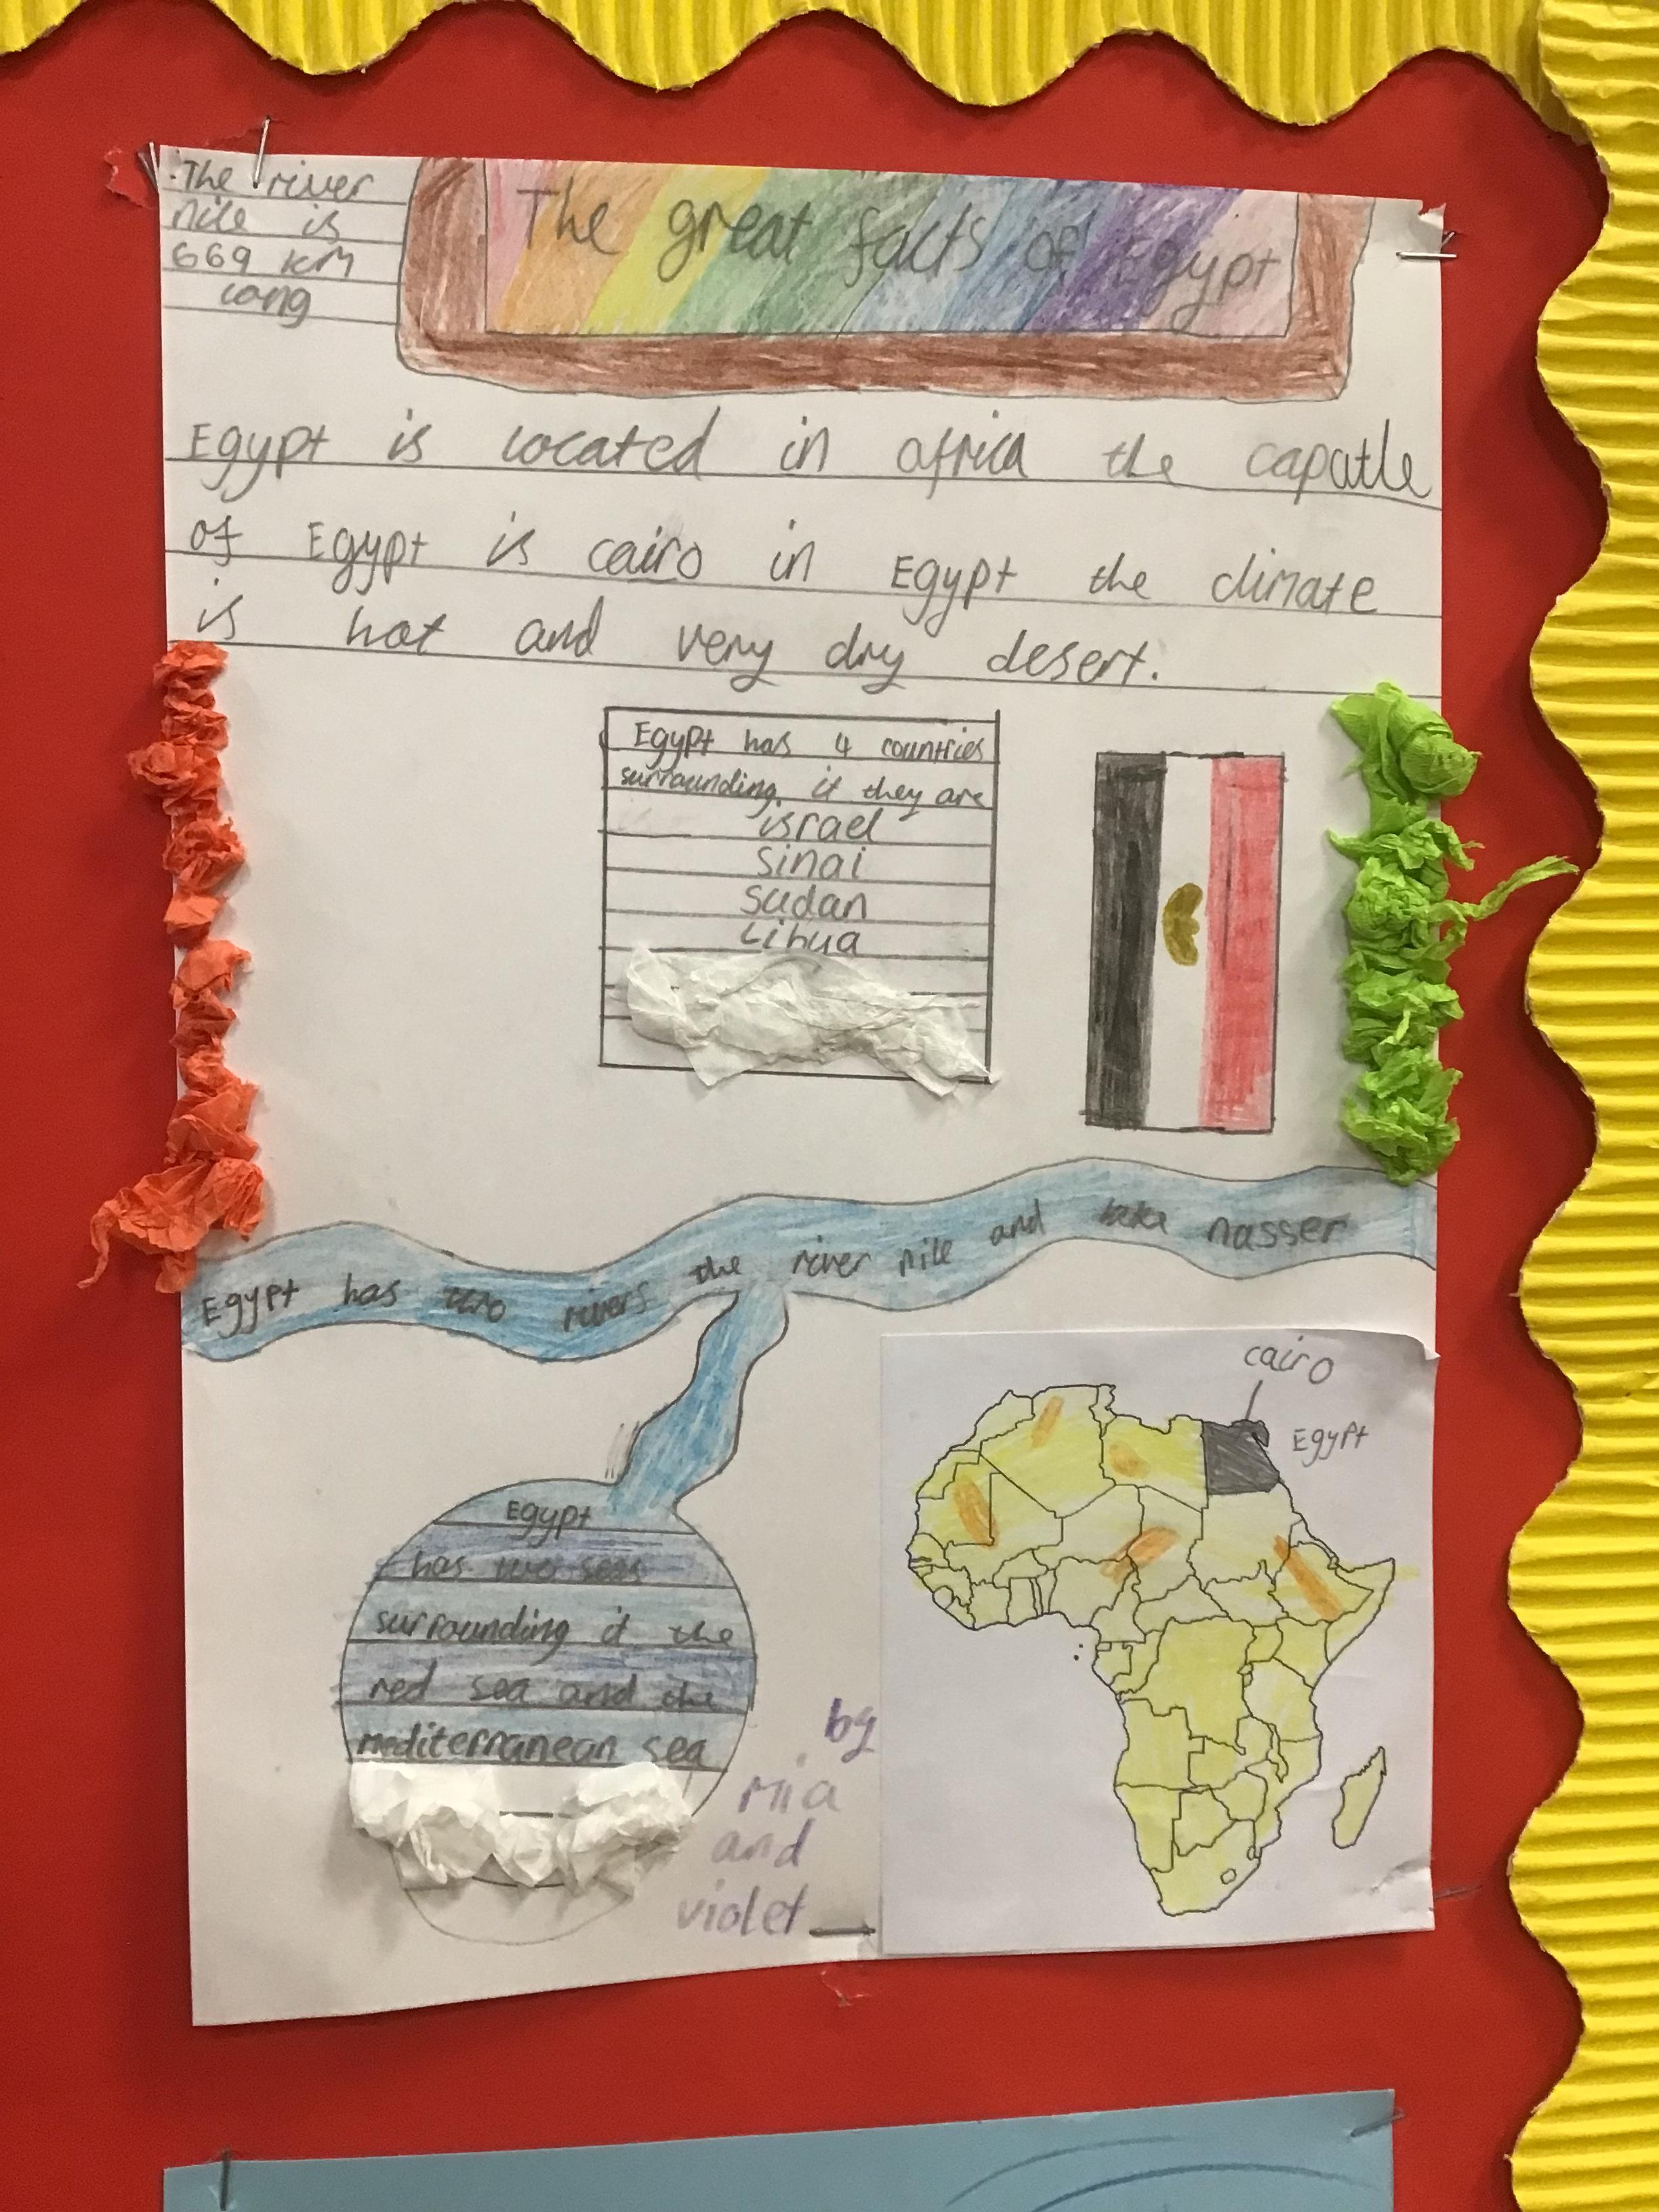 The river
nile is
669 km
long
The great facts of Egypt
Egypt is located in africa the capatle
of Egypt is cairo in Egypt the climate
is hot and very dry desert.
Egypt has 4 countries
surrounding it they are
israel
Sinai
Sudan
Libya
Egypt has two rivers the river nile and lake nasser
Egypt
has two seas
surrounding it the
red sea and the
mediterranean sea
by
mia
and
violet
cairo
Egypt